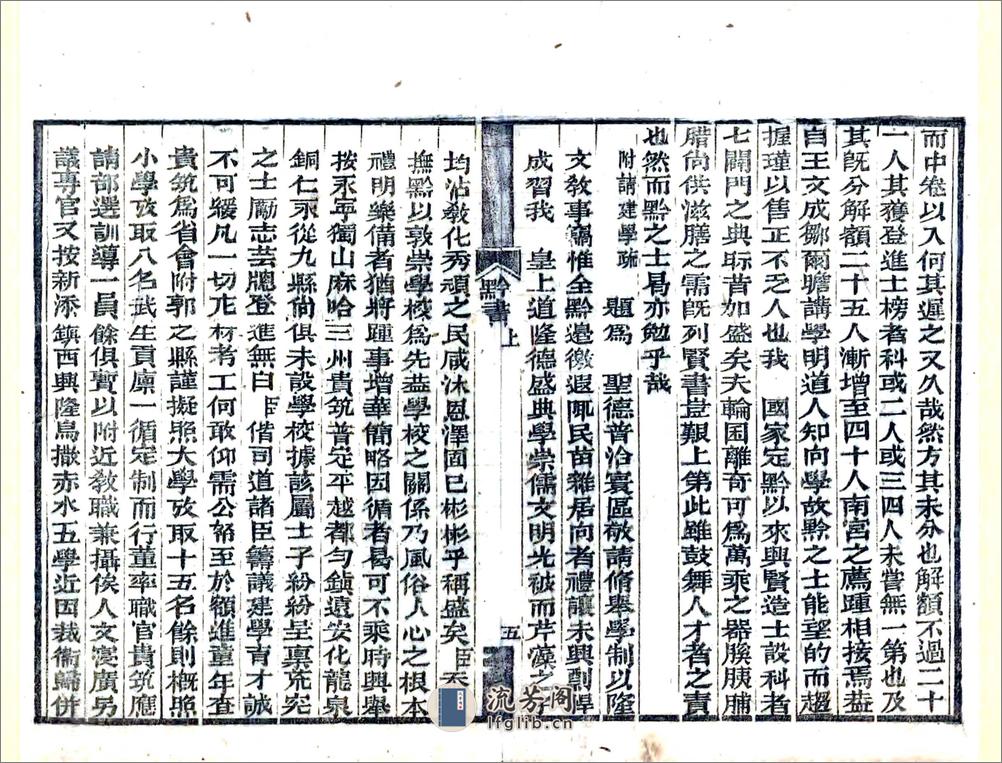 而中卷以入何其遲之又久哉然方其未分也解額不過二十
一人其獲登進士榜者科或二人或三四人未嘗無一第也及
其旣分解額二十五人漸增至四十人南宮之薦踵相接焉葢
自王文成鄒爾瞻講學明道人知向學故黔之士能望的而趨
握瑾以售正不乏人也我　國家定黔以來興賢造士設科者
七闢門之典視昔加盛矣夫輪囷離奇可爲萬乘之器腶胰脯
腊尙供滋膳之需旣列賢書豈艱上第此雖鼓舞人才者之責
也然而黔之士易亦勉乎哉
附請建學疏
題爲　聖德普洽寰區敬請脩舉學制以隆
文敎事竊惟全黔邊徼遐陬民苗雜居向者禮讓未興剽悍
成習我　皇上道隆德盛典學崇儒文明光被而芹藻之子
黔書　上　五
均沾敎化秀頑之民咸沐恩澤固已彬彬乎稱盛矣臣忝
撫黔以敦崇學校爲先葢學校之關係乃風俗人心之根本
禮明樂備者猶將踵事增華簡略因循者曷可不乘時興舉
按永寕獨山麻哈三州貴筑普定平越都勻鎭遠安化龍泉
銅仁永從九縣尙俱未設學校據該屬士子紛紛呈稟荒宂
之士勵志芸牕登進無自臣偕司道諸臣籌議建學育才誠
不可緩凡一切庀材考工何敢仰需公帑至於額進童年查
貴筑爲省會附郭之縣謹擬照大學攷取十五名餘則槪照
小學攷取八名武生貢廩一循定制而行董率職官貴筑應
請部選訓導一員餘俱暫以附近敎職兼攝俟人文寖廣另
議專官又按新添鎭西興隆烏撒赤水五學近因裁衞歸併
流芳阁
lfglib.cn